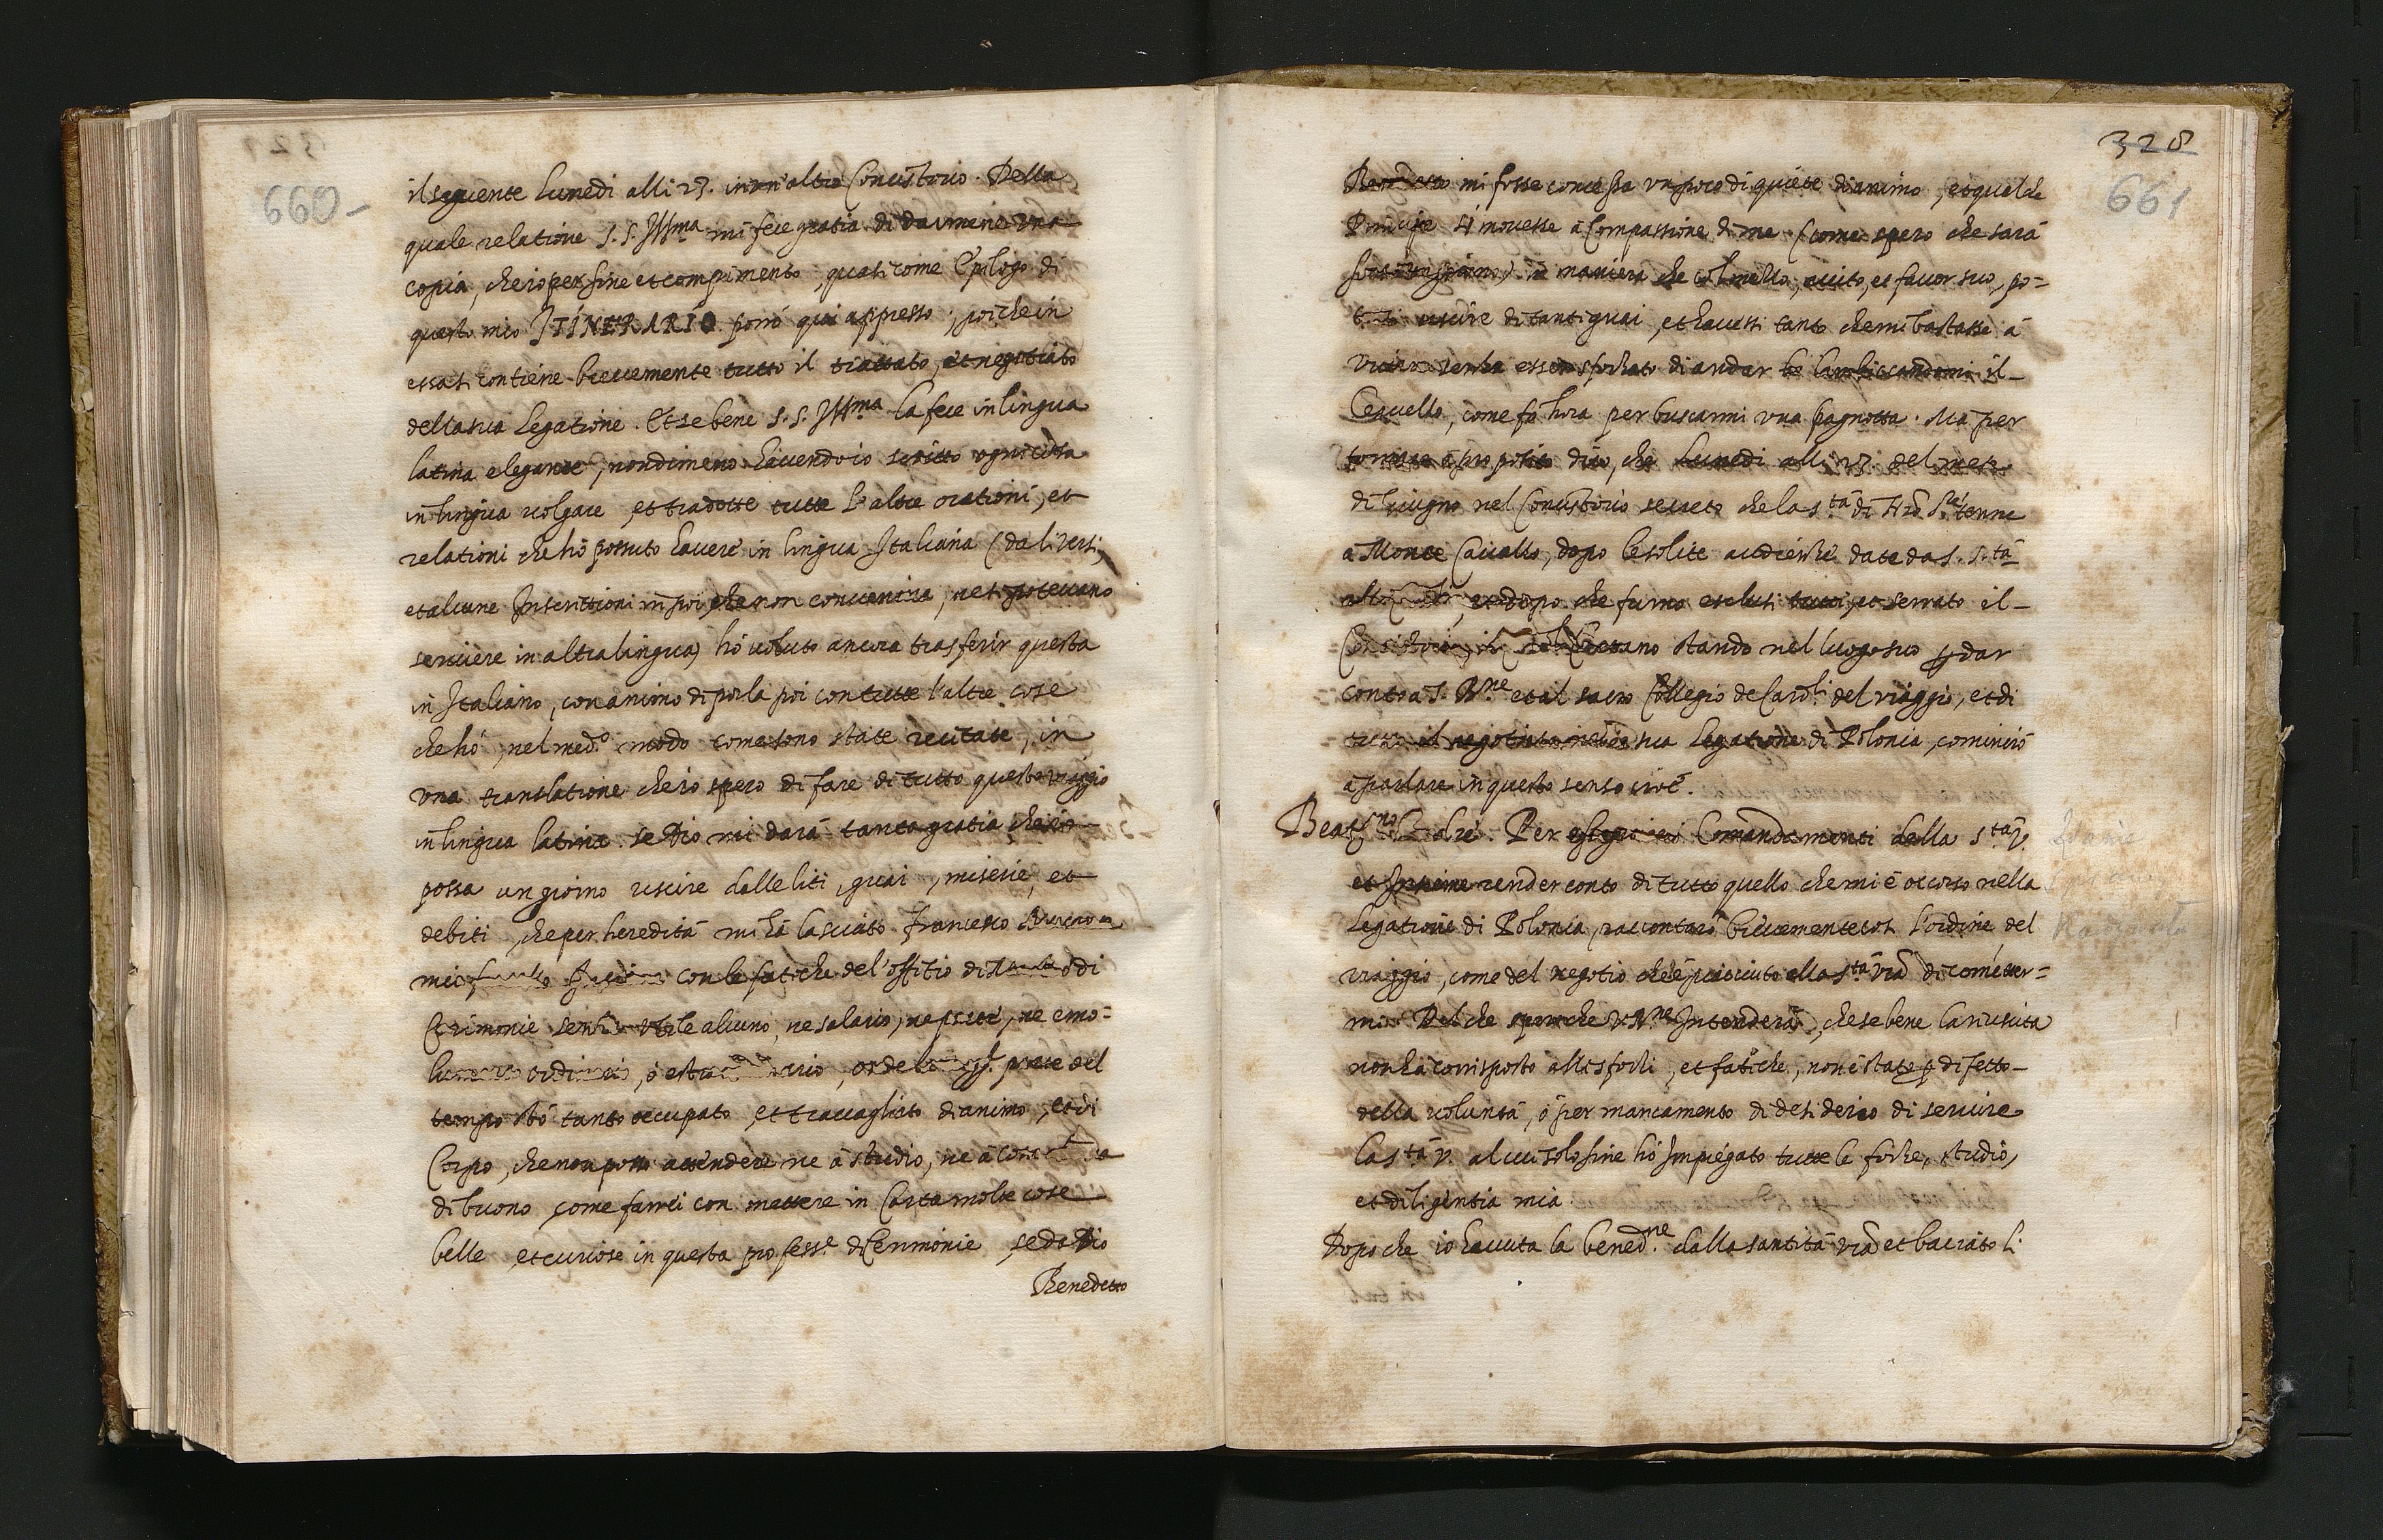 660-
il seguente lunedi alli 23. in un'altro Concistorio. Della
quale relatione S. S. Ill.ma mi fece gratia di darmene una
copia, che io per fine et compimento, quasi come Epilogo di
questo mio ITINERARIO porrò qui appresso, poiche in
essa si contiene brevemente tutto il trattato, et negotiato
della sua Legatione. Et se bene S. S. Ill.ma la fece in lingua
latina elegante, nondimeno havendo io scritto ogni cosa
in lingua volgare, et tradotte tutte l'altre orationi, et
relationi che hò possuto havere in lingua Italiana (da li versi,
et alcune Inscrittioni in poi che non conveniva, ne si potevano
scrivere in altra lingua) hò voluto ancora trasferir questa
in Italiano, con animo di porla poi con tutte l'altre cose
che hò, nel med.o modo come sono state recitate, in
una translatione che io spero di fare di tutto questo viaggio
in lingua latina. se Dio mi darà tanta gratia che io
possa un giorno uscire dalle liti, guai, miserie, et
debiti, che per heredità mi hà lasciato Francesco
mio con le fatiche del'offitio di di
Cerimonie utile alcuno, ne salario, ne , ne emo=
ordinarii, ò , parte del
tempo stò tanto occupato, et travagliato di animo, et di
Corpo, che non posso attendere ne à studio, ne à cosa
di buono, come farrei con mettere in Carta molte cose
belle, et curiose in questa profess.e di Cerimonie, se da Dio
Benedetto
328
661
Benedetto mi fosse concessa un poco di quiete di animo, et qualche
Principe si movesse à Compassione di me (come spero che sarà
) in maniera che col mezzo, aiuto, et favor suo, po=
tessi uscire di tanti guai, et havessi tanto che mi bastasse à
vivere senza esser sforzato di andar lambiccandomi il
Cervello, come fo hora per buscarmi una pagnotta. Ma per
tornare à proposito dico, che Lunedi alli 23. del mese
di Giugno nel Concistorio secreto che la S.tà di Nrõ S.re tenne
a Monte Cavallo, dopo le solite audienze date da S. S.tà
, et dopo che furno esclusi tutti, et serrato il
Concistorio, il Gaetano stando nel luogo suo p dar
conto a S. B.ne et al sacro Collegio de Card.li del viaggio, et di
tutto il negotiato nella sua Legatione di Polonia, cominciò
à parlare in questo senso cioè.
Beat.mo Padre. Per eseguire i Comandamenti della S.tà V.
et insieme render conto di tutto quello che mi è occorso nella
Legatione di Polonia, raccontarò brevemente cosi l'ordine del
viaggio, come del negotio che è piaciuto alla S.tà Vrã di cometter=
mi. Del che spero che V. B.ne Intenderà, che se bene la riuscita
non hà corrisposto alli sforzi, et fatiche, non è stato p difetto
della voluntà, ò per mancamento di desiderio di servire
la S.tà V. al cui solo fine hò Impiegato tutte le forze, studio,
et diligentia mia.
Dopo che io havuta la bened.ne dalla santità Vrã et baciato li